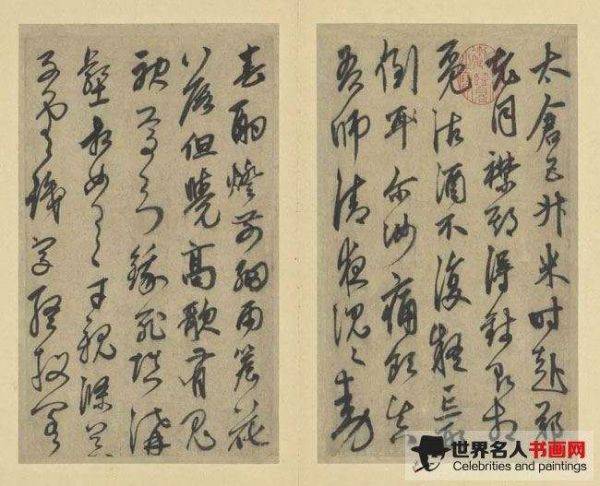 太倉五升米时赴鄭
老同襟期得錢即相
覓沽酒不復疑忘形
倒耳尔汝痛飲真
吾師清夜沉々動
春酌燈前細雨簷花
落但覺高歌有鬼
神焉知餓死填溝
壑相如逸才親滌器
子雲識字終投閣
世界名人书画网
Celebrities and paintings